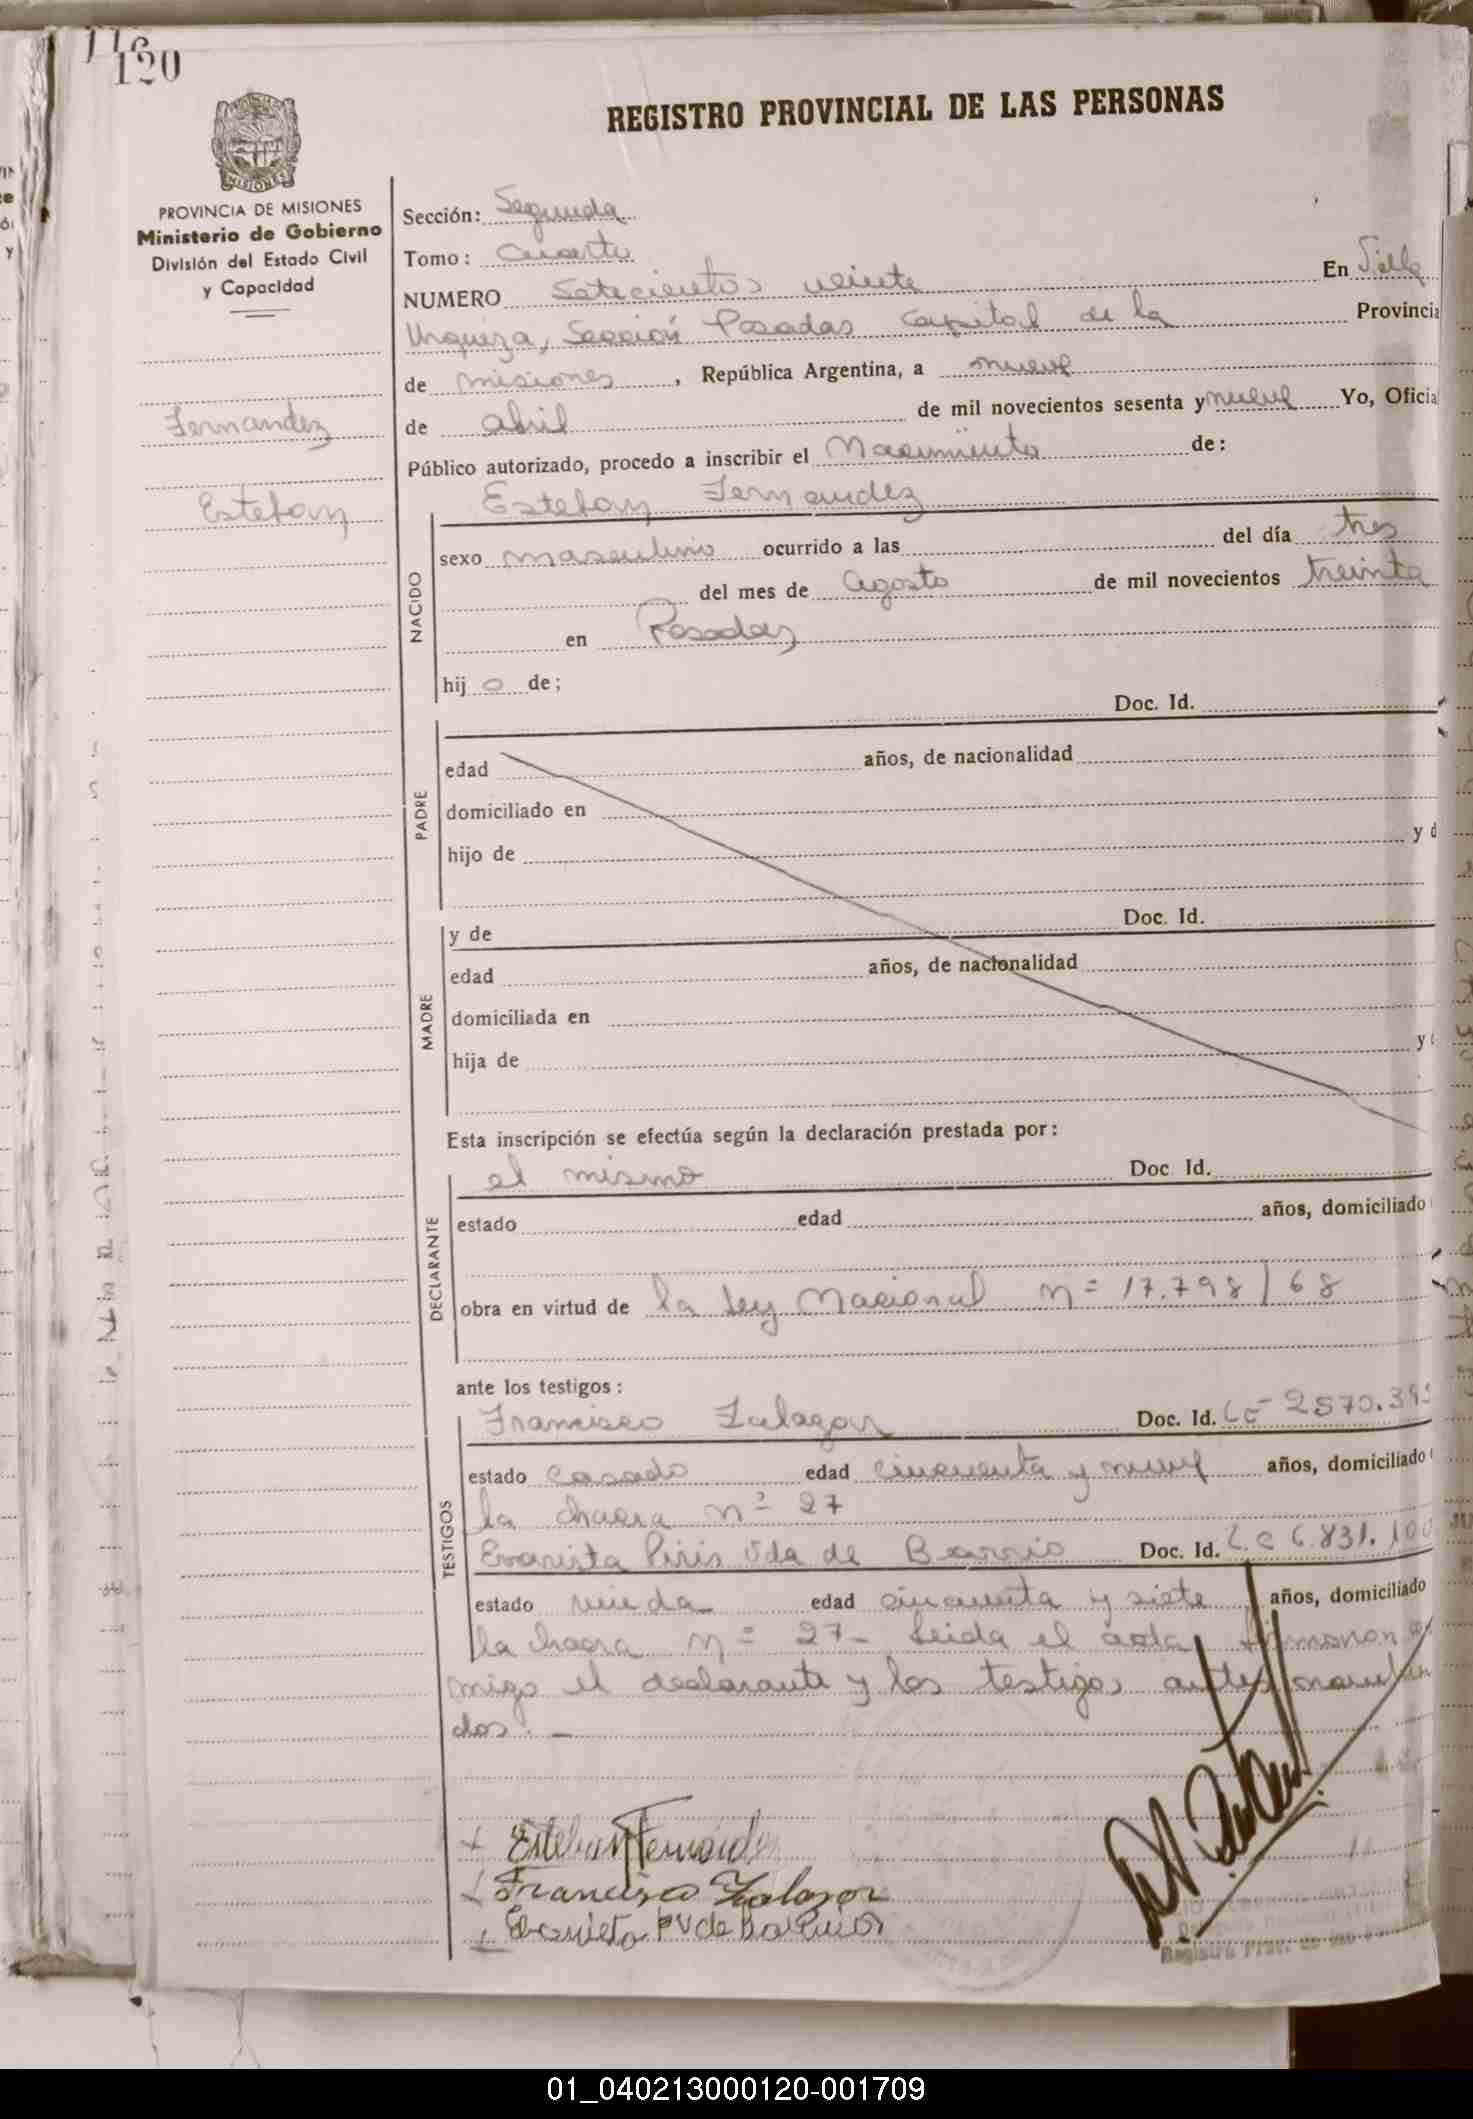 120
REGISTRO PROVINCIAL DE LAS PERSONAS
MISIONES
PROVINCIA DE MISIONES
Ministerio de Gobierno
División del Estado Civil
y Capacidad
Fernandez
Esteban
Sección: Segunda
Tomo: Cuarto
NUMERO Setecientos veinte En Villa
Urquiza, Sección Posadas Capital de la Provincia
de misiones, República Argentina, a nueve
de abril de mil novecientos sesenta y nueve Yo, Oficia
Público autorizado, procedo a inscribir el Nacimiento de:
Esteban Fernandez
NACIDO
sexo masculino ocurrido a las del día tres
del mes de Agosto de mil novecientos treinta
en Posadas
hijo de;
PADRE
Doc. Id.
edad años, de nacionalidad
domiciliado en
hijo de y d
MADRE
y de Doc. Id.
edad años, de nacionalidad
domiciliada en
hija de y
Esta inscripción se efectúa según la declaración prestada por:
DECLARANTE
el mismo Doc. Id.
estado edad años, domiciliado
obra en virtud de la ley Nacional n= 17.798/68
ante los testigos:
TESTIGOS
Francisco Zalazar Doc. Id. 2570.39
estado casado edad cincuenta y nueve años, domiciliado
la chacra nº 27
Evarista Piris Vda de Barrio Doc. Id. L.C 6.831.100
estado viuda edad cincuenta y siete años, domiciliado
la chacra n= 27- Leida el acta, firmaron
migo el declarante y los testigos antes
dos. —
+ Esteban Fernande
Francisco Zalazar
Registro Prov. de las
01_040213000120-001709